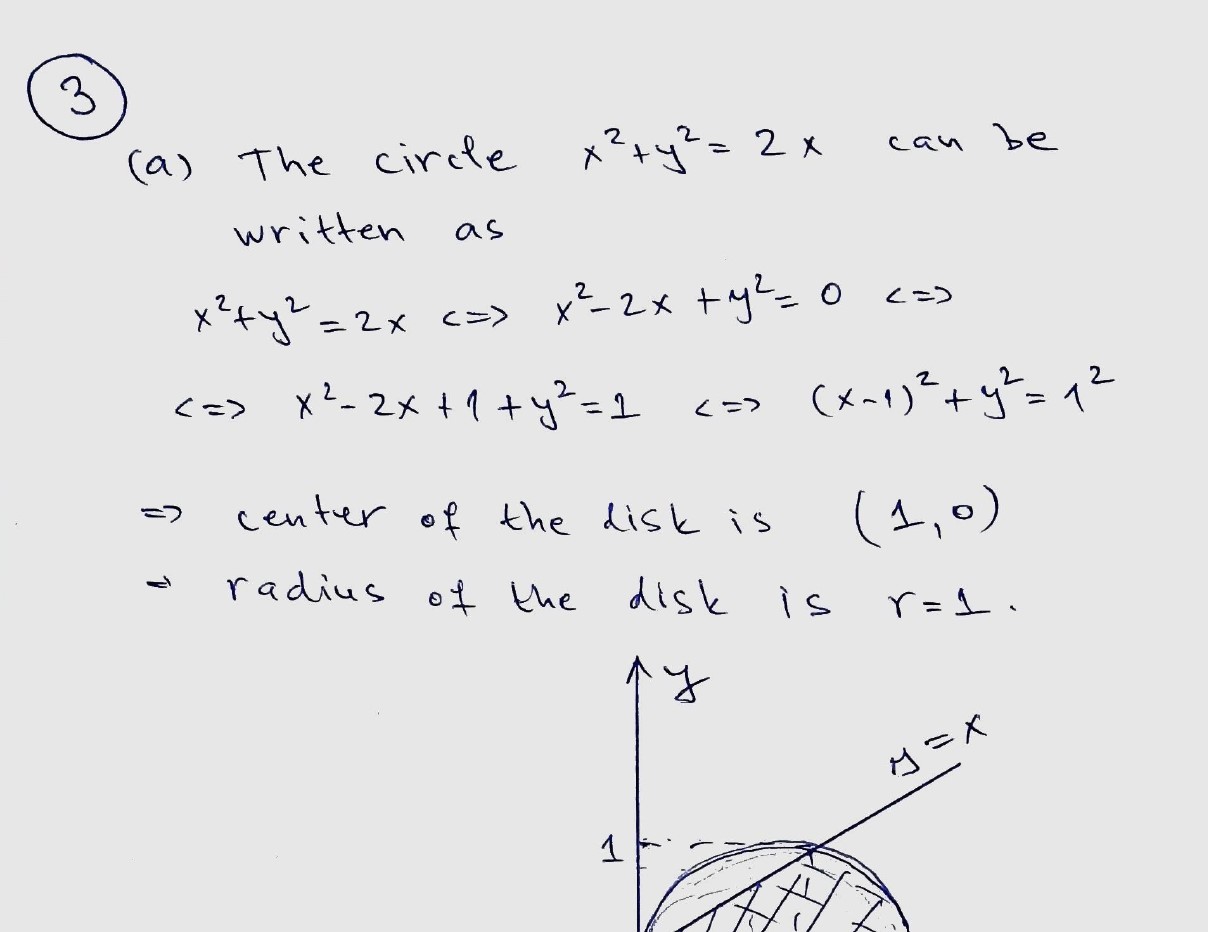 3
(a) The circle x²+y²=2x can be
written as
x²+y²=2x <=> x²-2x+y²=0 <=>
<=> x²-2x+1+y²=1 <=> (x-1)²+y²=1²
=> center of the disk is (1,0)
=> radius of the disk is r=1.
y
y=x
1